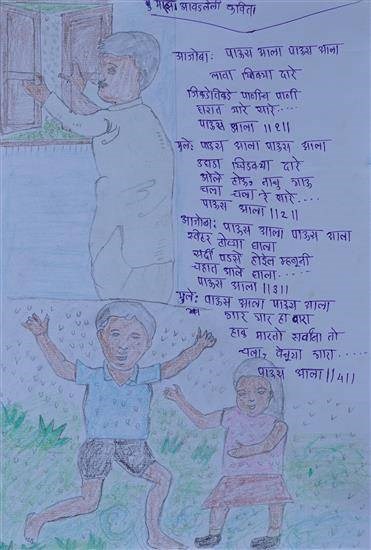 माझी आवडलेली कविता
आजोबा: पाऊस आला पाऊस आला
लावा खिडक्या दारे
जिकडेतिकडे पाणीच पाणी
घरात जारे सारे.....
पाऊस आला ||१||
मुले: पाऊस आला पाऊस आला
उघडा खिडक्या दारे
ओले होऊ, नाचु गाऊ
चला चला रे सारे....
पाऊस आला ||2||
आजोबा: पाऊस आला पाऊस आला
स्वेटर टोप्या घाला
सर्दी पडसे होईल म्हणूनी
चहात आले घाला.....
पाऊस आला ||3||
मुले: पाऊस आला पाऊस आला
गार गार हा वारा
हाक मारतो सर्वांना तो
चला, वेचूया गारा.....
पाऊस आला ||4||